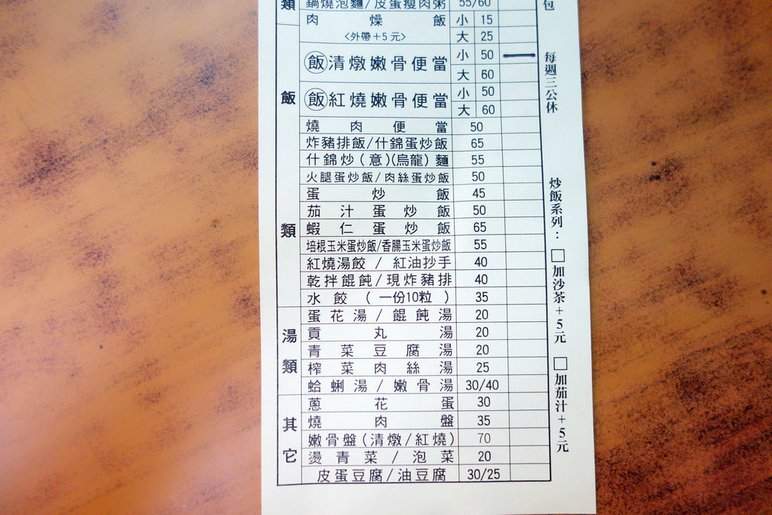 類 鍋燒泡麵/皮蛋瘦肉粥 55/60
肉燥飯 小 15
<外帶+5元> 大 25
飯清燉嫩骨便當 小 50
大 60
飯紅燒嫩骨便當 小 50
大 60
飯類
燒肉便當 50
炸豬排飯/什錦蛋炒飯 65
什錦炒(意)(烏龍)麵 55
火腿蛋炒飯/肉絲蛋炒飯 50
蛋炒飯 45
茄汁蛋炒飯 50
蝦仁蛋炒飯 65
培根玉米蛋炒飯/香腸玉米蛋炒飯 55
紅燒湯餃/紅油抄手 40
乾拌餛飩/現炸豬排 40
水餃(一份10粒) 35
湯類
蛋花湯/餛飩湯 20
貢丸湯 20
青菜豆腐湯 20
榨菜肉絲湯 25
蛤蜊湯/嫩骨湯 30/40
其它
蔥花蛋 30
燒肉盤 35
嫩骨盤(清燉/紅燒) 70
燙青菜/泡菜 20
皮蛋豆腐/油豆腐 30/25
包
每週三公休
炒飯系列:□加沙茶+5元 □加茄汁+5元